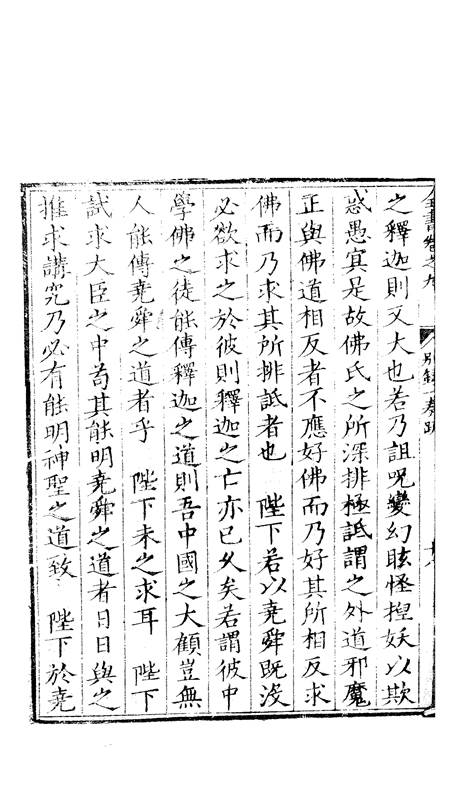 全書卷之九　別錄一奏疏
之釋迦則又大也若乃詛呪變幻眩怪揑妖以欺
惑愚冥是故佛氏之所深排極詆謂之外道邪魔
正與佛道相反者不應好佛而乃好其所相反求
佛而乃求其所排詆者也　陛下若以堯舜旣沒
必欲求之於彼則釋迦之亡亦已久矣若謂彼中
學佛之徒能傳釋迦之道則吾中國之大顧豈無
人能傳堯舜之道者乎　陛下未之求耳　陛下
試求大臣之中苟其能明堯舜之道者日日與之
推求講究乃必有能明神聖之道致　陛下於堯